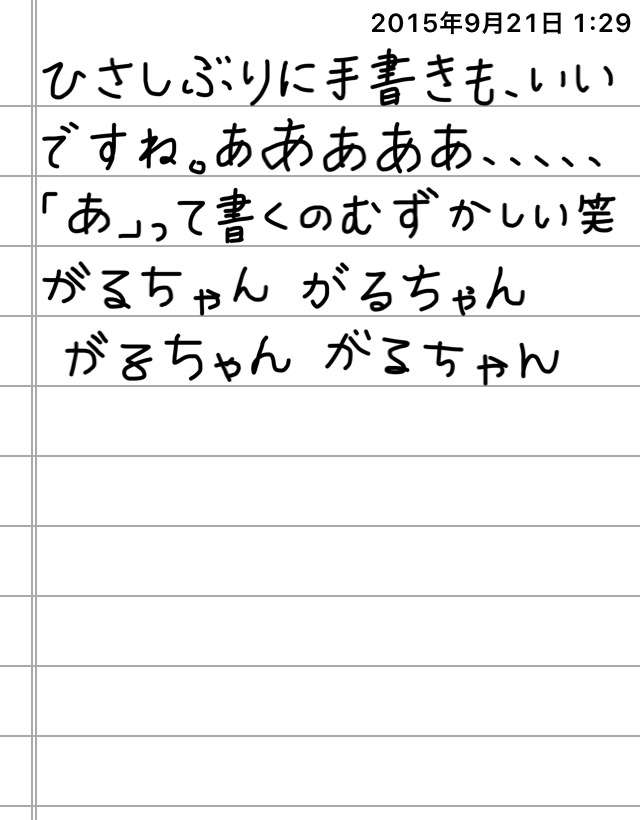 2015年9月21日 1:29
ひさしぶりに手書きも、いい
ですね。あああああ、、、、、
「あ」って書くのむずかしい笑
がるちゃん がるちゃん
がるちゃん がるちゃん